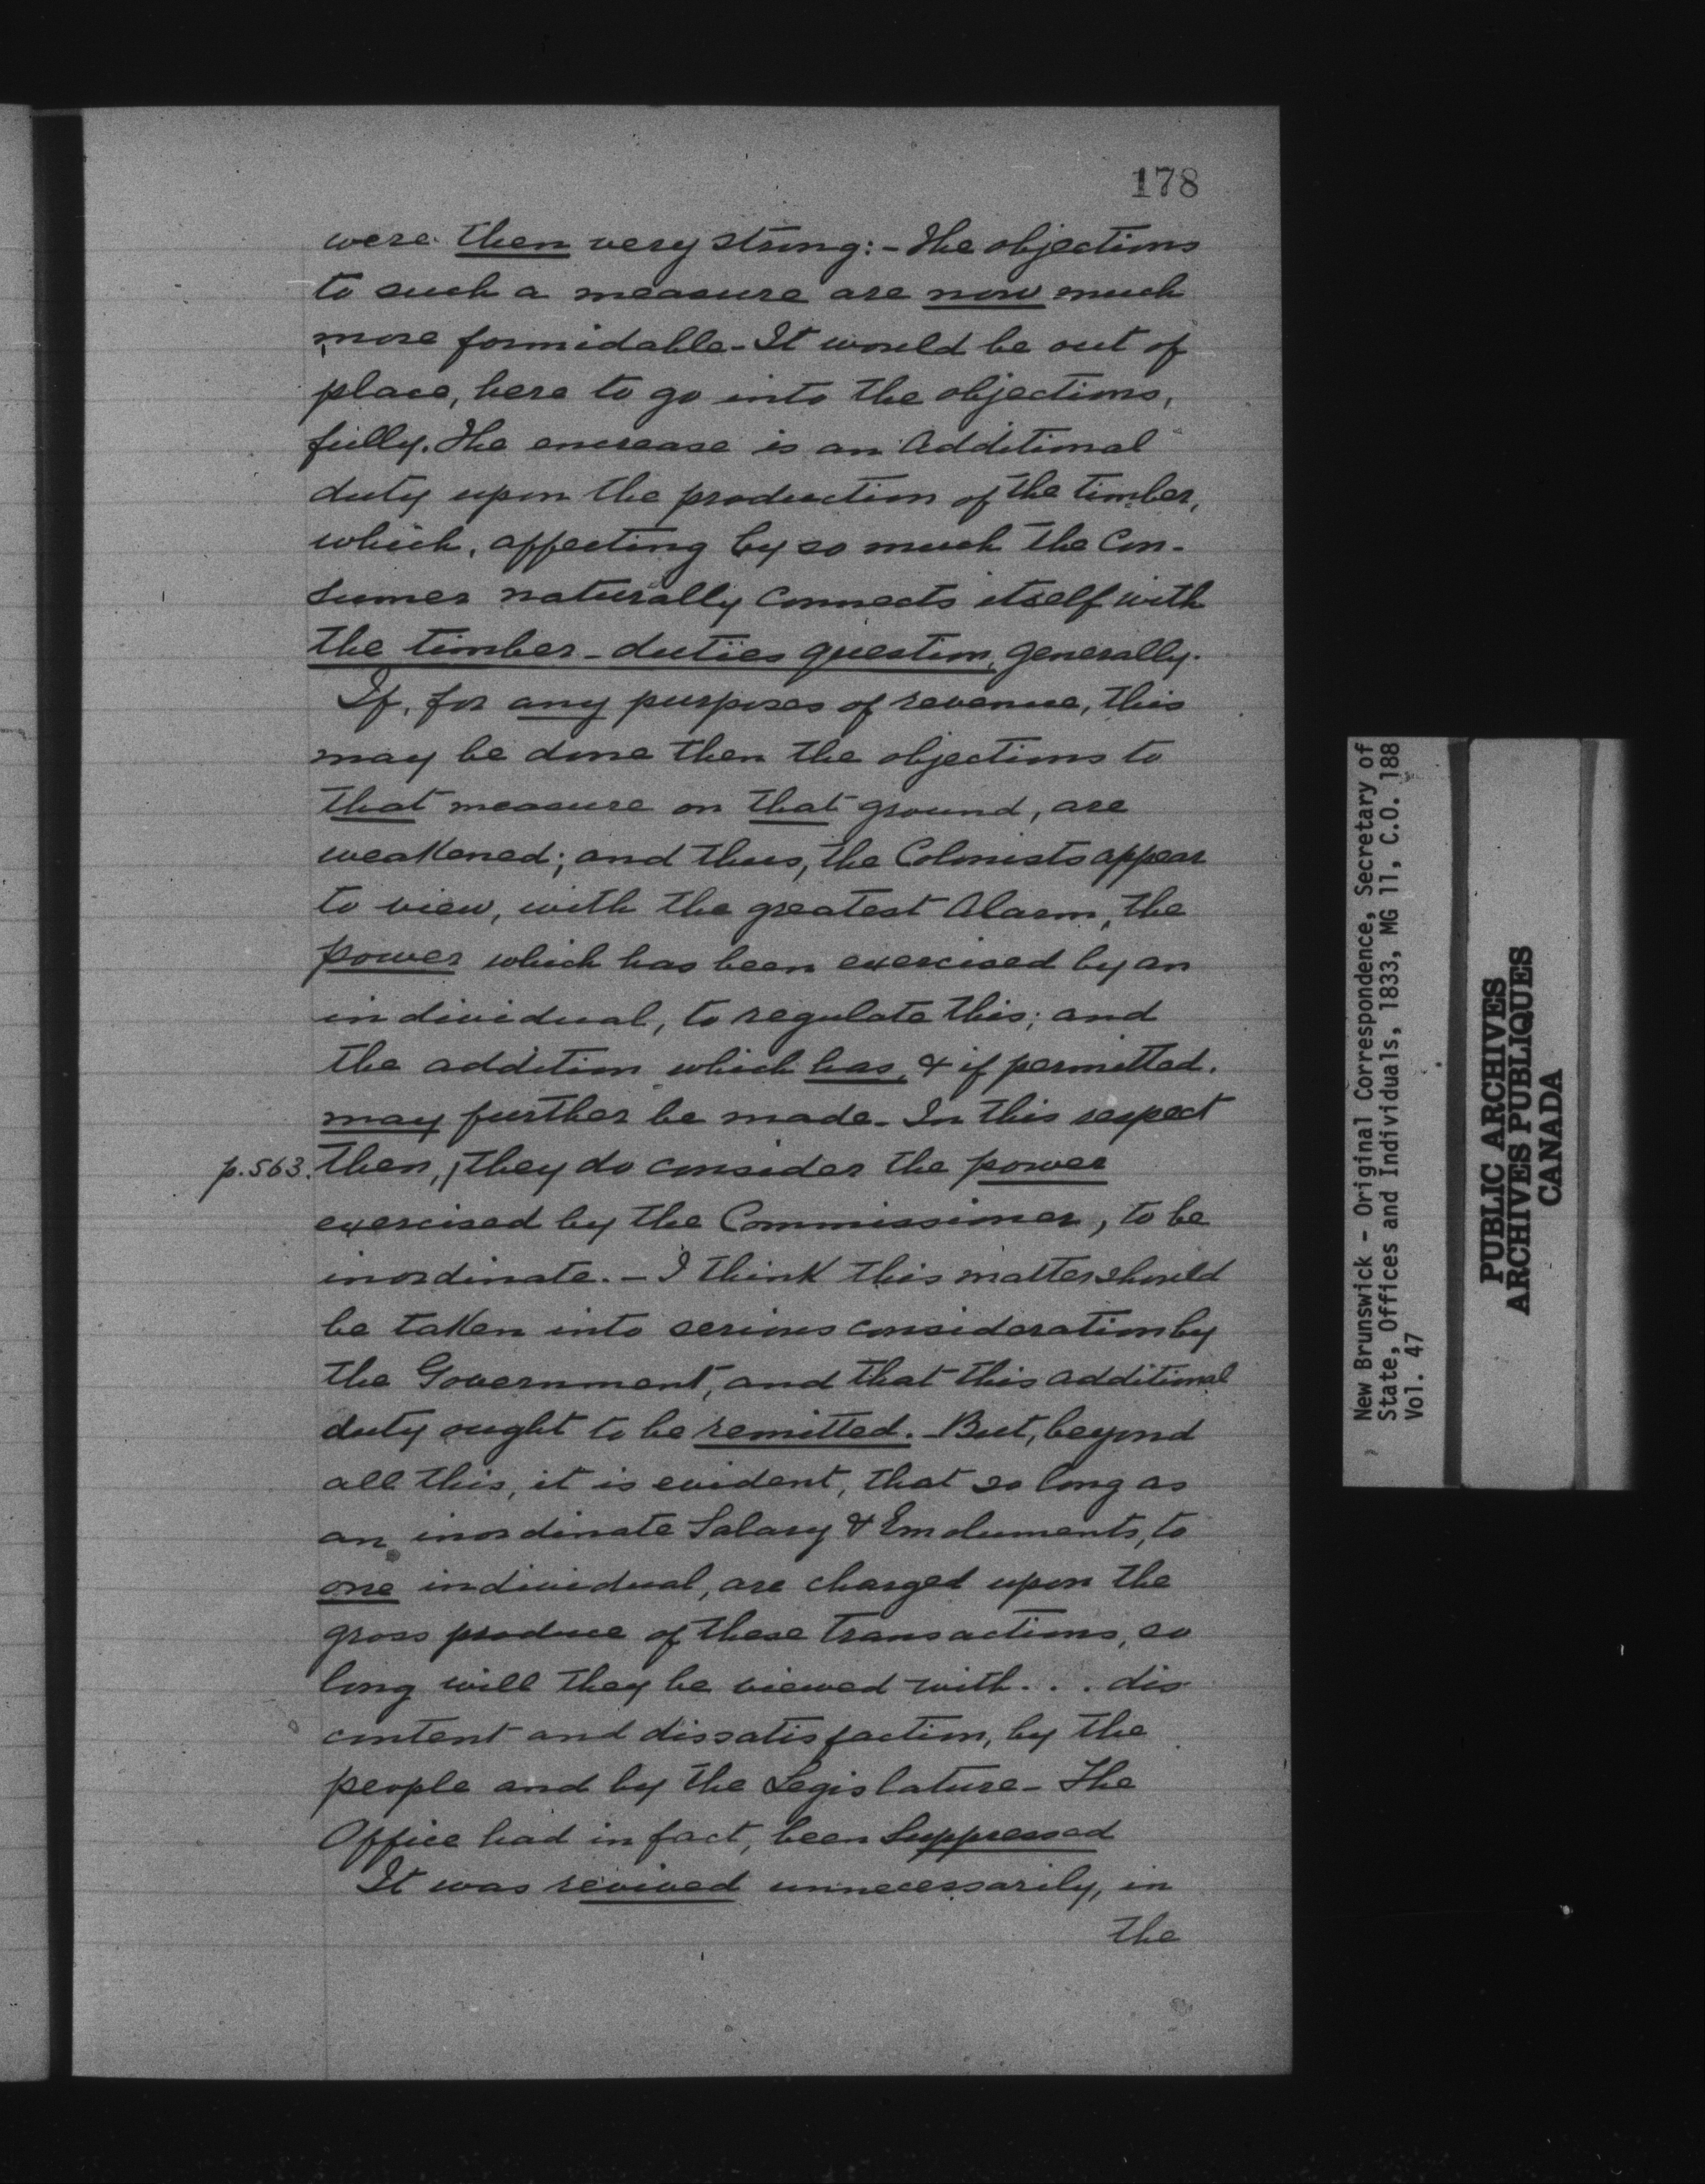 178
were then very strong:- The objections
to such a measure are now much
more formidable - It would be out of
place, here to go into the objections,
fully. The encrease is an Additional
duty upon the production of the timber,
which, affecting by so much the Con-
sumer naturally connects itself with
the timber-duties question, generally.
If, for any purposes of revenue, this
may be done then the objections to
that measure on that ground, are
weakened; and thus, the Colonists appear
to view, with the greatest Alarm, the
power which has been exercised by an
individual, to regulate this; and
the addition which has, & if permitted.
may further be made - In this respect
p.563. then, they do consider the power
exercised by the Commissioner, to be
inordinate. - I think this matter should
be taken into serious consideration by
the Government, and that this additional
duty ought to be remitted. - But, beyond
all this, it is evident, that so long as
an inordinate Salary & Emoluments, to
one individual, are charged upon the
gross produce of these transactions, so
long will they be viewed with . . . dis
content and dissatisfaction, by the
people and by the Legislature - The
Office had in fact, been Suppressed
It was revived unnecessarily, in
the
New Brunswick - Original Correspondence, Secretary of
State, Offices and Individuals, 1833, MG 11, C.O. 188
Vol. 47
PUBLIC ARCHIVES
ARCHIVES PUBLIQUES
CANADA